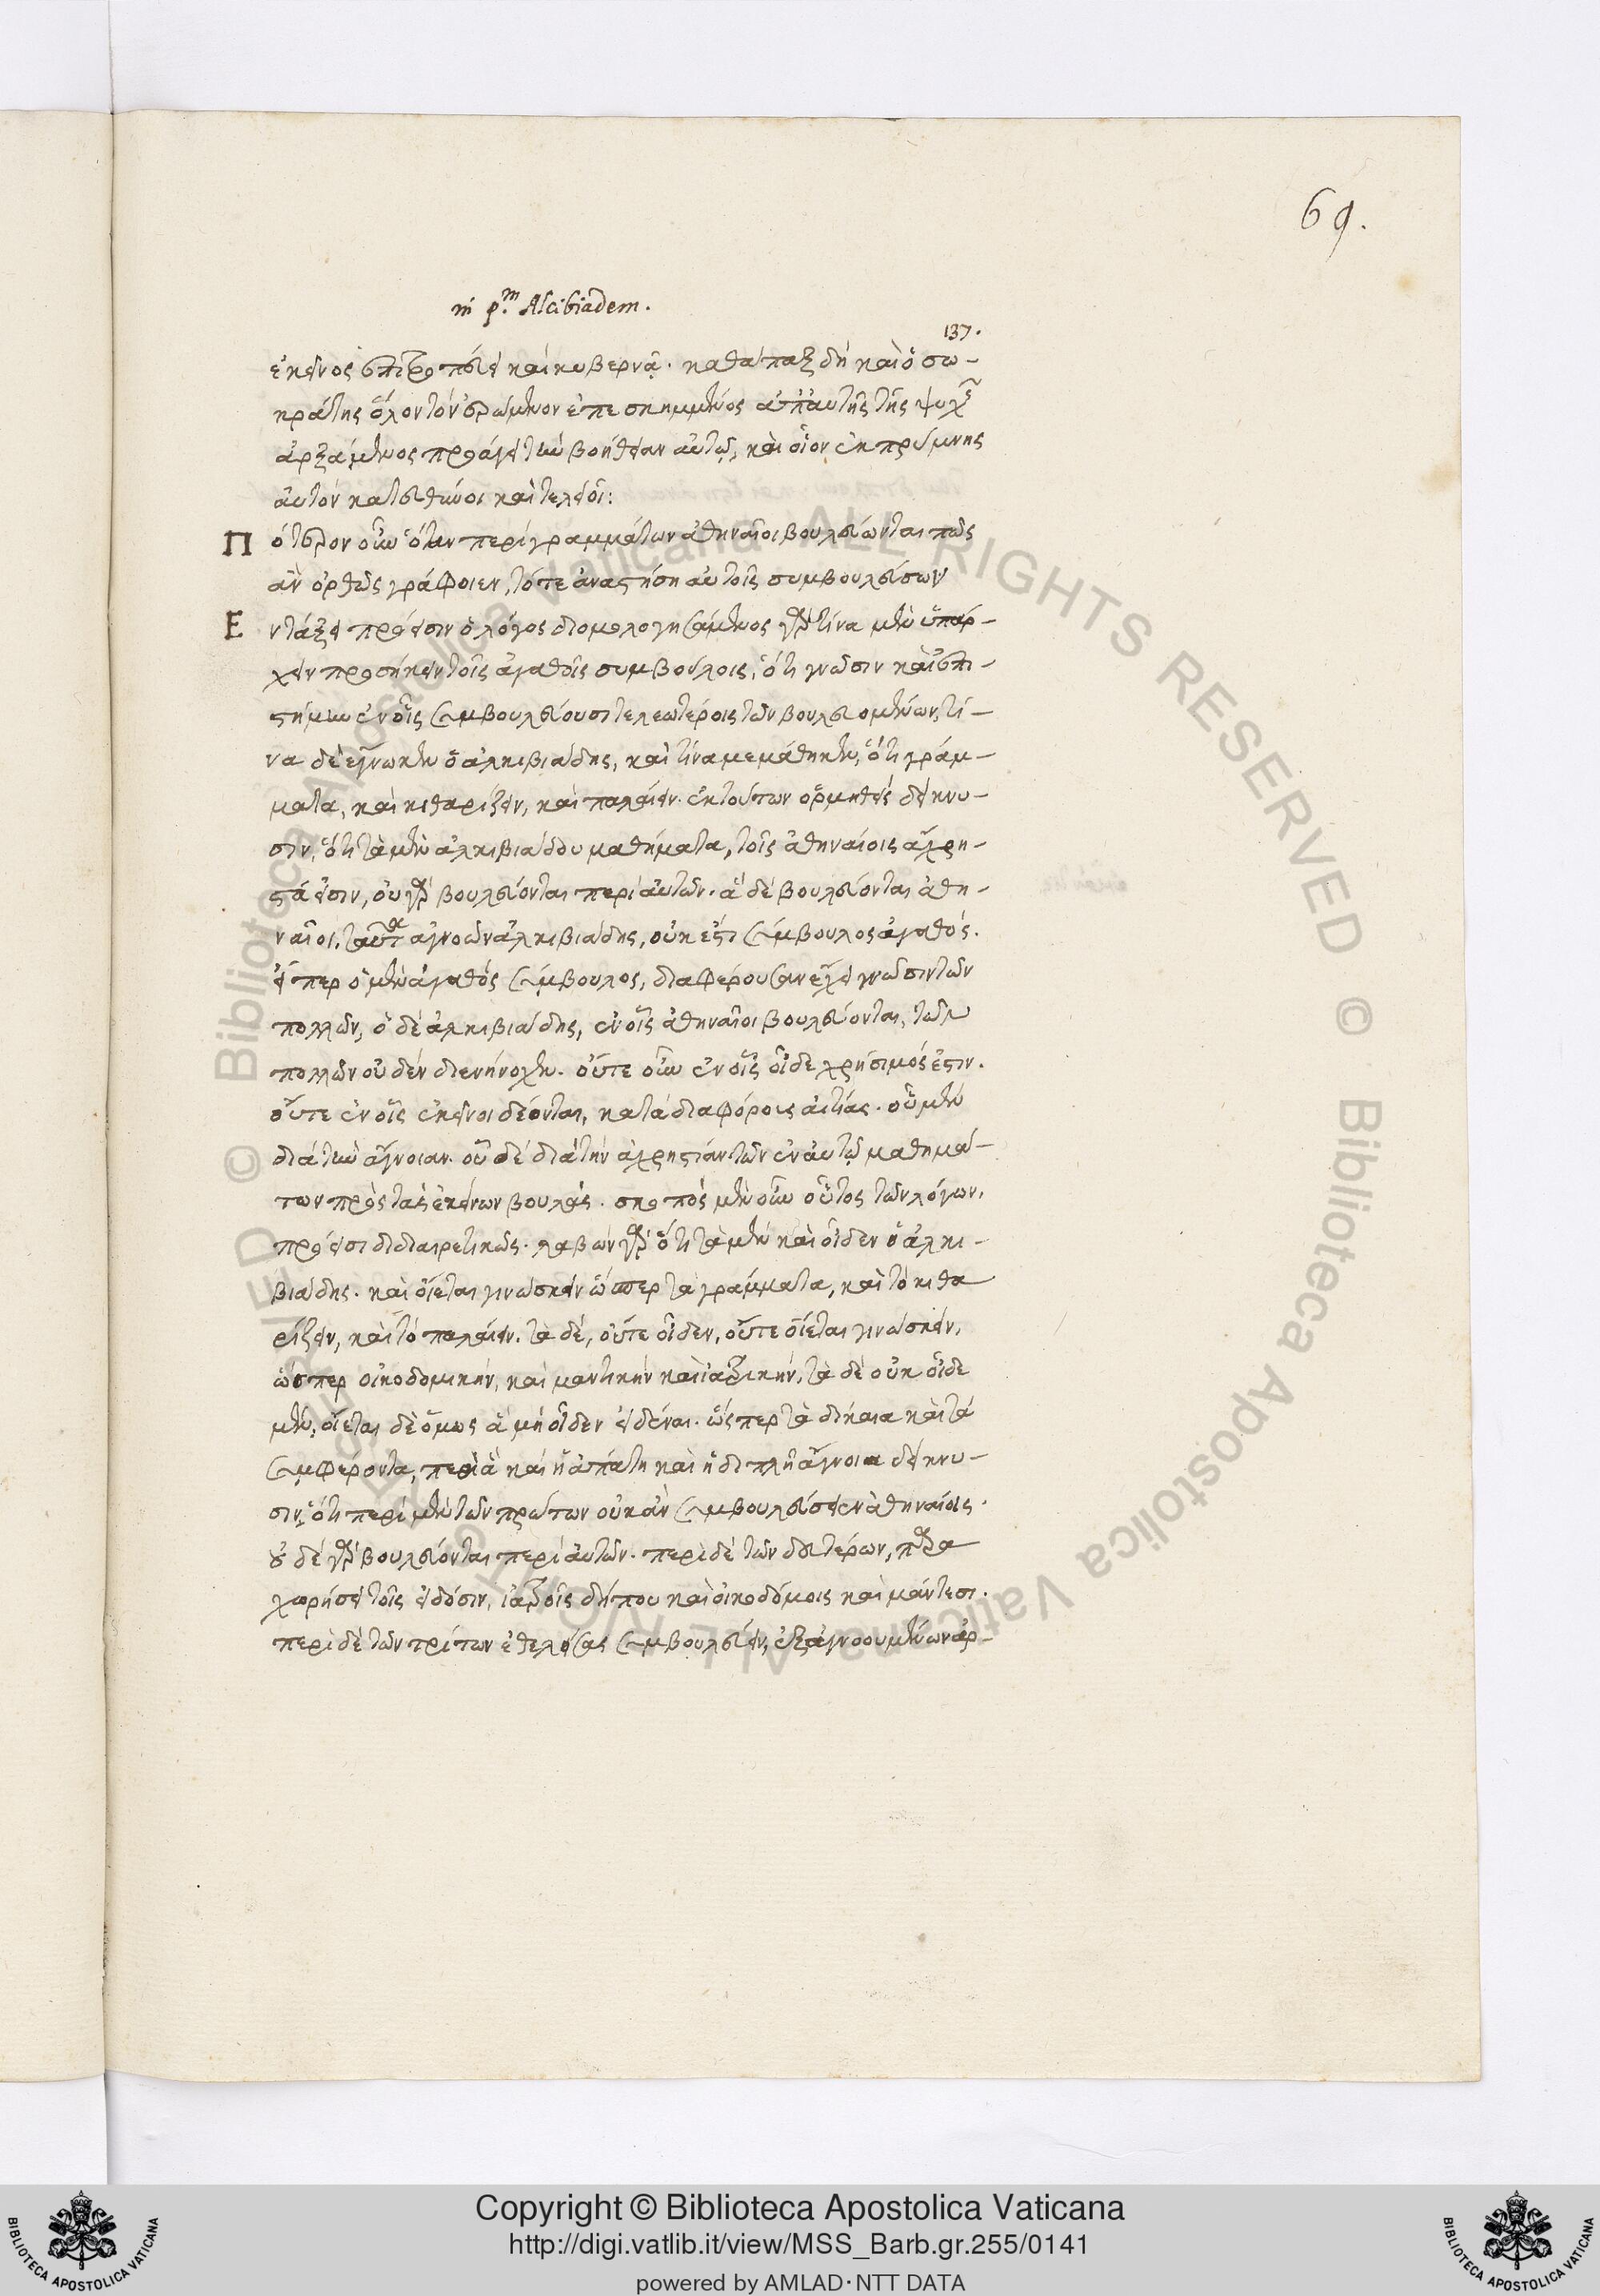 69.
in p.m Alcibiadem.
137.
ἐκεῖνος ἐπιτροπεύει καὶ κυβερνᾷ. καθάπαξ δὴ καὶ ὁ σω-
κράτης ὅλον τὸν ἐρώμενον ἐπεσκεμμένος ἀπ' αὐτῆς τῆς ψυχῆς
ἀρξάμενος προάγει τὴν βοήθειαν αὐτῷ, καὶ οἷον ἐκ πρύμνης
αὐτὸν κατευθύνει καὶ τελειοῖ:
Πότερον οὖν ὅταν περὶ γραμμάτων ἀθηναῖοι βουλεύωνται πῶς
ἂν ὀρθῶς γράφοιεν, τότε ἀναστήσῃ αὐτοῖς συμβουλεύσων
Ἐν τάξει πρόεισιν ὁ λόγος διομολογησάμενος γὰρ τίνα μὲν ὑπάρ-
χειν προσήκει τοῖς ἀγαθοῖς συμβούλοις, ὅτι γνῶσιν καὶ ἐπι-
στήμην ἐν οἷς συμβουλεύουσι τελεωτέροις τῶν βουλευομένων, τί-
να δὲ ἔγνωκεν ὁ ἀλκιβιάδης, καὶ τίνα μεμάθηκεν, ὅτι γράμ-
ματα, καὶ κιθαρίζειν, καὶ παλαίειν. ἐκ τούτων ὁρμηθεὶς δείκνυ-
σιν, ὅτι τὰ μὲν ἀλκιβιάδου μαθήματα, τοῖς ἀθηναίοις ἄχρη-
στά εἰσιν, οὐ γὰρ βουλεύονται περὶ αὐτῶν. ἃ δὲ βουλεύονται ἀθη-
ναῖοι, ταῦτα ἀγνοῶν ἀλκιβιάδης, οὐκ ἔστι σύμβουλος ἀγαθός.
εἴπερ ὁ μὲν ἀγαθὸς σύμβουλος, διαφέρουσαν ἔχει γνῶσιν τῶν
πολλῶν, ὁ δὲ ἀλκιβιάδης, ἐν οἷς ἀθηναῖοι βουλεύονται, τῶν
πολλῶν οὐδὲν διενήνοχεν. οὔτε οὖν ἐν οἷς οἶδε χρήσιμός ἐστιν.
οὔτε ἐν οἷς ἐκεῖνοι δέονται, κατὰ διαφόρους αἰτίας. οὗ μὲν
διὰ τὴν ἄγνοιαν. οὗ δὲ διὰ τὴν ἀχρηστίαν τῶν ἐν αὐτῷ μαθημά-
των πρὸς τὰς ἐκείνων βουλάς. σκοπὸς μὲν οὖν οὗτος τῶν λόγων,
πρόεισι διαιρετικῶς. λαβὼν γὰρ ὅτι τὰ μὲν καὶ οἶδεν ὁ ἀλκι-
βιάδης. καὶ οἴεται γινώσκειν ὥσπερ τὰ γράμματα, καὶ τὸ κιθα
ρίζειν, καὶ τὸ παλαίειν. τὰ δὲ, οὔτε οἶδεν, οὔτε οἴεται γινώσκειν,
ὥσπερ οἰκοδομικὴν, καὶ μαντικὴν καὶ ἰατρικήν, τὰ δὲ οὐκ οἶδε
μὲν, οἴεται δὲ ὅμως ἃ μὴ οἶδεν εἰδέναι. ὥσπερ τὰ δίκαια καὶ τὰ
συμφέροντα, περὶ ἃ καὶ ἡ ἀπάτη καὶ ἡ διπλῆ ἄγνοια δείκνυ-
σιν, ὅτι περὶ μὲν τῶν πρώτων οὐκ ἂν συμβουλεύσειεν ἀθηναίοις.
οὐδὲ γὰρ βουλεύονται περὶ αὐτῶν. περὶ δὲ τῶν δευτέρων, παρα
χωρήσει τοῖς εἰδόσιν, ἰατροῖς δήπου καὶ οἰκοδόμοις καὶ μάντεσι.
περὶ δὲ τῶν τρίτων ἐθελήσας συμβουλεύειν, ἐξ ἀγνοουμένων ἀρ-
Copyright © Biblioteca Apostolica Vaticana
http://digi.vatlib.it/view/MSS_Barb.gr.255/0141
powered by AMLAD·NTT DATA
BIBLIOTECA APOSTOLICA VATICANA
BIBLIOTECA APOSTOLICA VATICANA